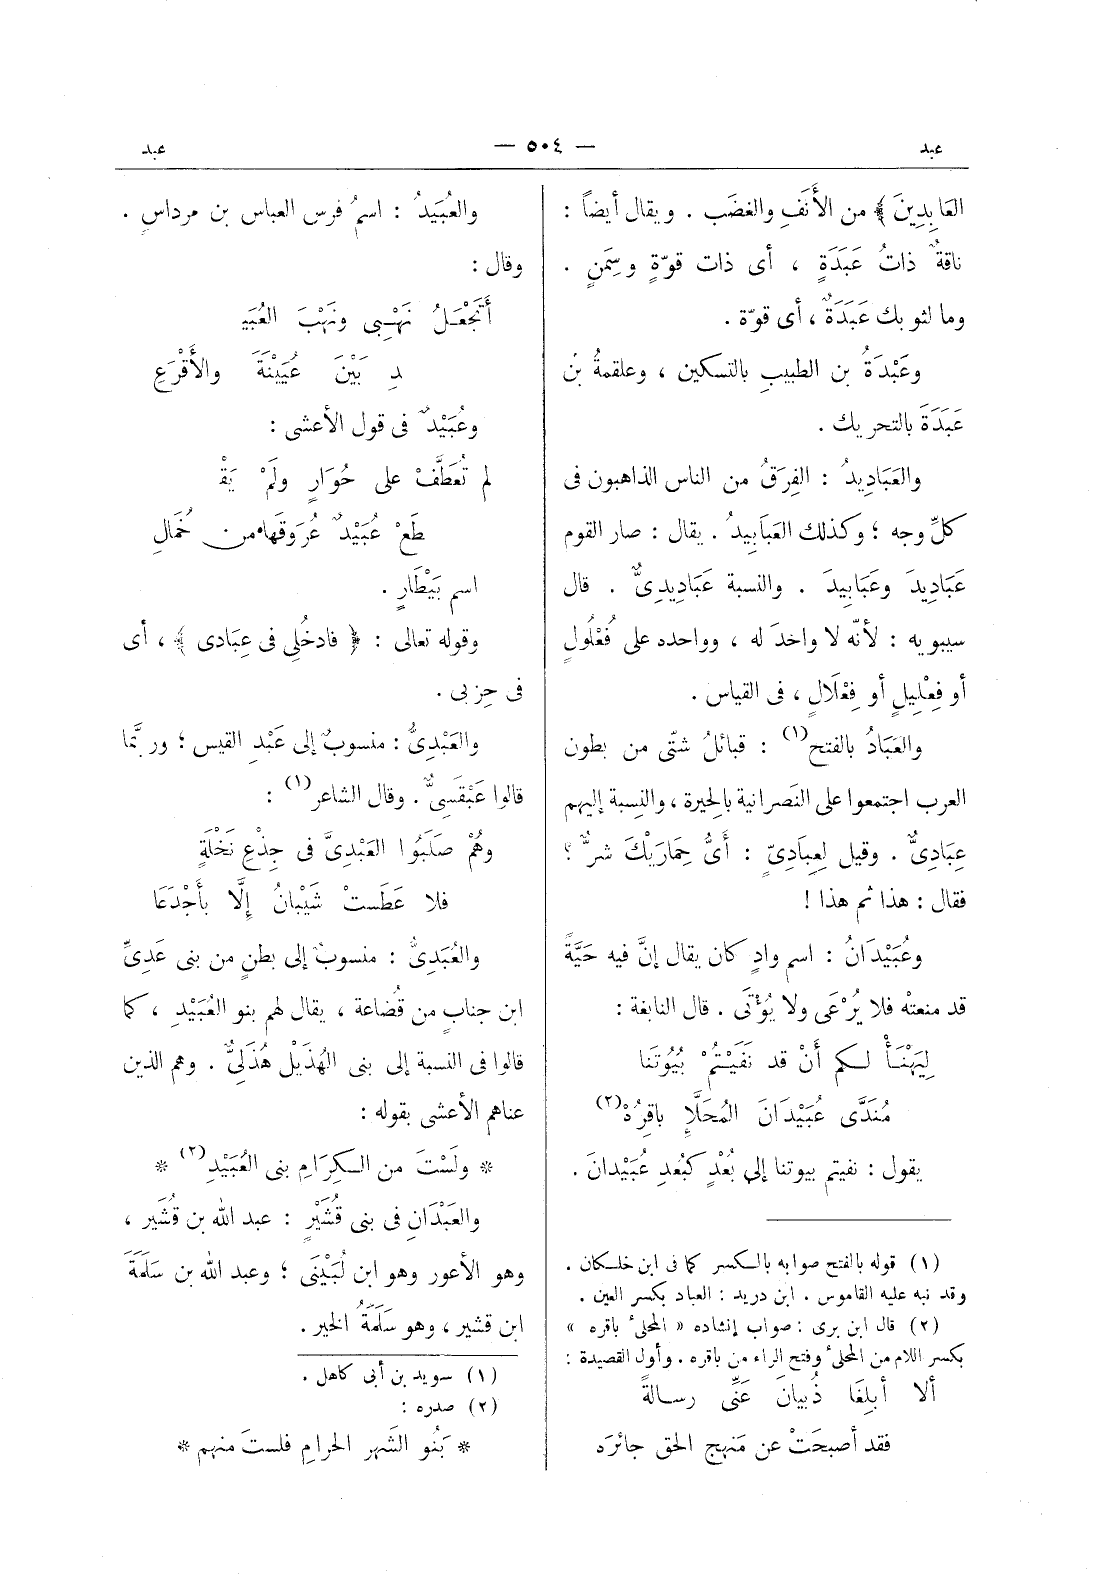 عبد — ٥٠٤ — عبد
العَابِدِينَ ﴾ من الأَنَفِ والغضَب . ويقال أيضاً :
ناقةٌ ذاتُ عَبَدَةٍ ، أى ذات قوّةٍ وسِمَنٍ .
وما لثوبك عَبَدَةٌ ، أى قوّة .
وعَبْدَةُ بن الطبيبِ بالتسكين ، وعلقمةُ بنُ
عَبَدَةَ بالتحريك .
والعَبَادِيدُ : الفِرَقُ من الناس الذاهبون فى
كلِّ وجه ؛ وكذلك العبَابِيدُ . يقال : صار القوم
عَبَادِيدَ وعَبَابِيدَ . والنسبة عَبَادِيدِىٌّ . قال
سيبويه : لأنّه لا واحدَ له ، وواحده على فُعْلُولٍ
أو فِعْلِيلٍ أو فِعْلَالٍ ، فى القياس .
والعَبَادُ بالفتح(١) : قبائلُ شتّى من بطون
العرب اجتمعوا على النَصرانية بالحِيرة ، والنِسبة إليهم
عِبَادِىٌّ . وقيل لِعِبَادِىّ ٍ : أَىُّ حِمَارَيْكَ شرٌّ ؟
فقال : هذا ثم هذا !
وعُبَيْدَانُ : اسم وادٍ كان يقال إنَّ فيه حَيَّةً
قد منعتْه فلا يُرْعَى ولا يُؤْتَى . قال النابغة :
لِيَهْنَأْ لكم أَنْ قد نَفَيْتُمْ بُيُوتَنا
مُنَدَّى عُبَيْدَانَ المُحَلَّإِ باقِرُهْ(٢)
يقول : نفيتم بيوتنا إلى بُعْدٍ كبُعدِ عُبَيْدانَ .
(١) قوله بالفتح صوابه بالكسر كما فى ابن خلكان .
وقد نبه عليه القاموس . ابن دريد : العباد بكسر العين .
(٢) قال ابن برى : صواب إنشاده « المحلئ باقره »
بكسر اللام من المحلئ وفتح الراء من باقره . وأول القصيدة :
ألا أبلِغَا ذُبيانَ عَنِّى رسالةً
فقد أصبحَتْ عن مَنهج الحق جائرَه
والعُبَيدُ : اسمُ فرس العباس بن مرداسٍ .
وقال :
أَتَجْعَلُ نَهْبِى ونَهْبَ العُبَيـ
ـدِ بَيْنَ عُيَيْنَةَ والأَقْرَعِ
وعُبَيْدٌ فى قول الأعشى :
لم تُعَطَّفْ على حُوَارٍ ولَمْ يَقْـ
ـطَعْ عُبَيْدٌ عُرُوقَها من خُمَالِ
اسم بَيْطَارٍ .
وقوله تعالى : ﴿ فادخُلِى فى عِبَادى ﴾ ، أى
فى حِزبى .
والعَبْدِىُّ : منسوبٌ إلى عَبْدِ القيس ؛ وربَّما
قالوا عَبْقَسِىٌّ . وقال الشاعر(١) :
وهُمْ صَلَبُوا العَبْدِىَّ فى جِذْعِ نَخْلَةٍ
فلا عَطَستْ شَيْبانُ إلَّا بأَجْدَعَا
والعُبَدِىُّ : منسوبٌ إلى بطنٍ من بنى عَدِىِّ
ابن جنابٍ من قُضاعة ، يقال لهم بنو العُبَيْدِ ، كما
قالوا فى النسبة إلى بنى الهُذَيْلِ هُذَلِىٌّ . وهم الذين
عناهم الأعشى بقوله :
* ولَسْتَ من الكِرَامِ بنى العُبَيْدِ(٢) *
والعَبْدَانِ فى بنى قُشَيْرٍ : عبد الله بن قُشَير ،
وهو الأعور وهو ابن لُبَيْنَى ؛ وعبد الله بن سَلَمَةَ
ابن قشير ، وهو سَلَمَةُ الخير .
(١) سويد بن أبى كاهل .
(٢) صدره :
* بَنُو الشَهر الحرامِ فلستَ منهم *